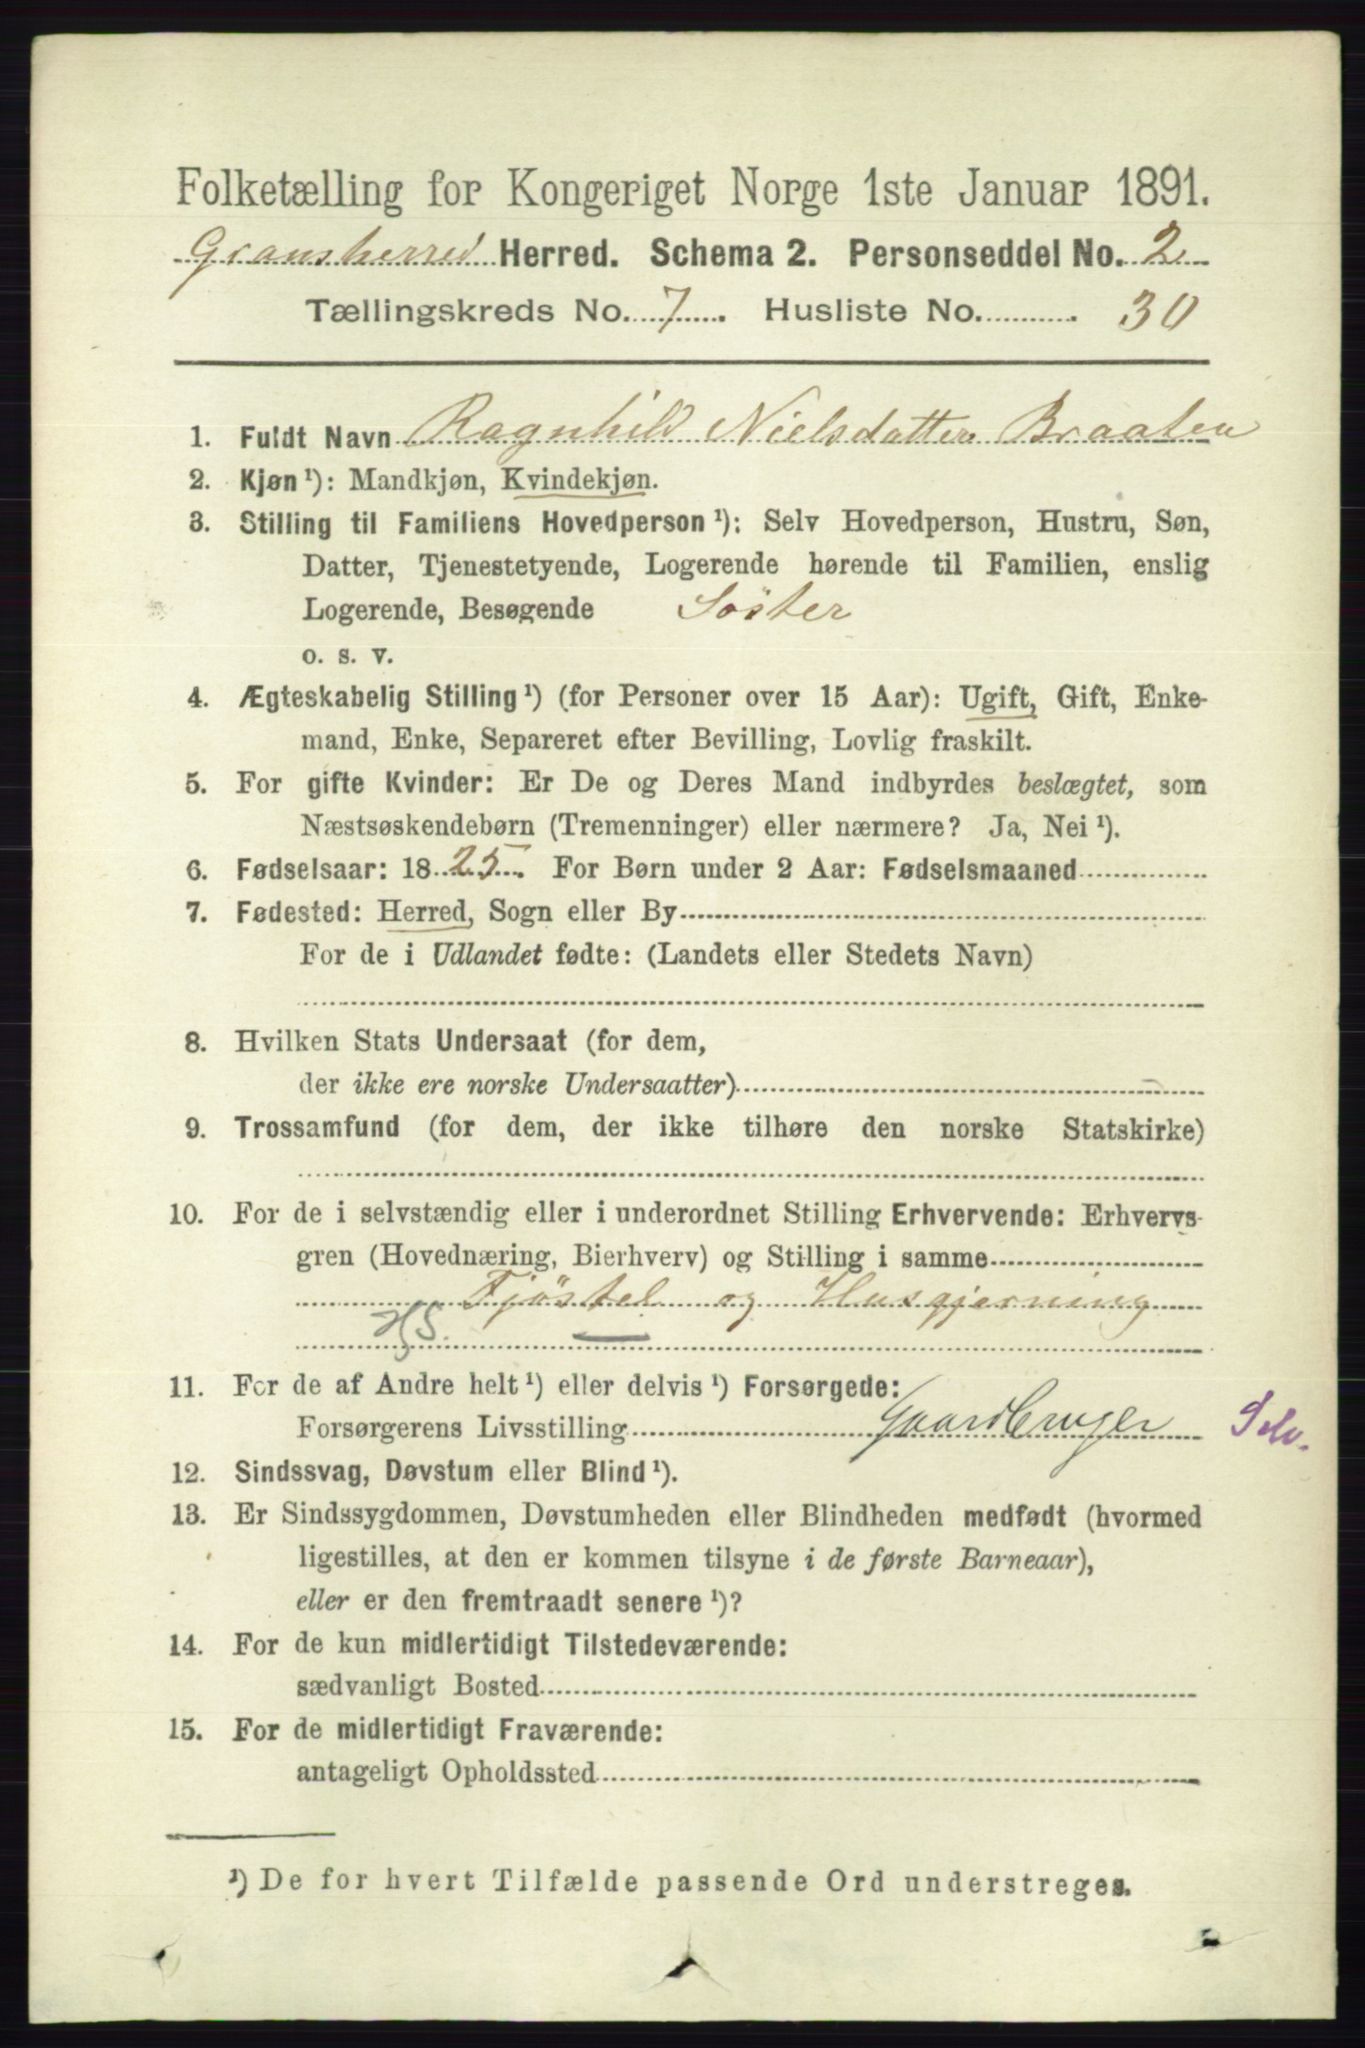 Folketælling for Kongeriget Norge 1ste Januar 1891.
Gransherred Herred. Schema 2. Personseddel No. 2
Tællingskreds No. 7. Husliste No. 30
1. Fuldt Navn Ragnhild Nielsdatter Braaten
2. Kjøn ¹): Mandkjøn, Kvindekjøn.
3. Stilling til Familiens Hovedperson ¹): Selv Hovedperson, Hustru, Søn,
Datter, Tjenestetyende, Logerende hørende til Familien, enslig
Logerende, Besøgende Söster
o. s. v.
4. Ægteskabelig Stilling ¹) (for Personer over 15 Aar): Ugift, Gift, Enke-
mand, Enke, Separeret efter Bevilling, Lovlig fraskilt.
5. For gifte Kvinder: Er De og Deres Mand indbyrdes beslægtet, som
Næstsøskendebørn (Tremenninger) eller nærmere? Ja, Nei ¹).
6. Fødselsaar: 1825. For Børn under 2 Aar: Fødselsmaaned
7. Fødested: Herred, Sogn eller By
For de i Udlandet fødte: (Landets eller Stedets Navn)
8. Hvilken Stats Undersaat (for dem,
der ikke ere norske Undersaatter)
9. Trossamfund (for dem, der ikke tilhøre den norske Statskirke)
10. For de i selvstændig eller i underordnet Stilling Erhvervende: Erhvervs-
gren (Hovednæring, Bierhverv) og Stilling i samme
Fjöstel og Husgjerning
11. For de af Andre helt ¹) eller delvis ¹) Forsørgede:
Forsørgerens Livsstilling Gaardbruger Selv.
12. Sindssvag, Døvstum eller Blind ¹).
13. Er Sindssygdommen, Døvstumheden eller Blindheden medfødt (hvormed
ligestilles, at den er kommen tilsyne i de første Barneaar),
eller er den fremtraadt senere ¹)?
14. For de kun midlertidigt Tilstedeværende:
sædvanligt Bosted
15. For de midlertidigt Fraværende:
antageligt Opholdssted
¹) De for hvert Tilfælde passende Ord understreges.